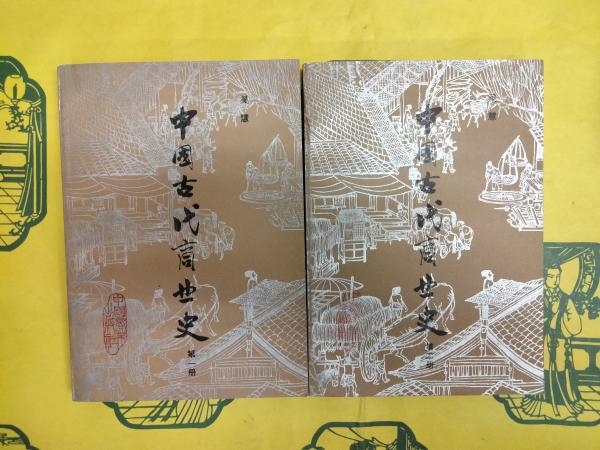 吴慧
中國古代商业史
第一册
中國古代商业史
第二册